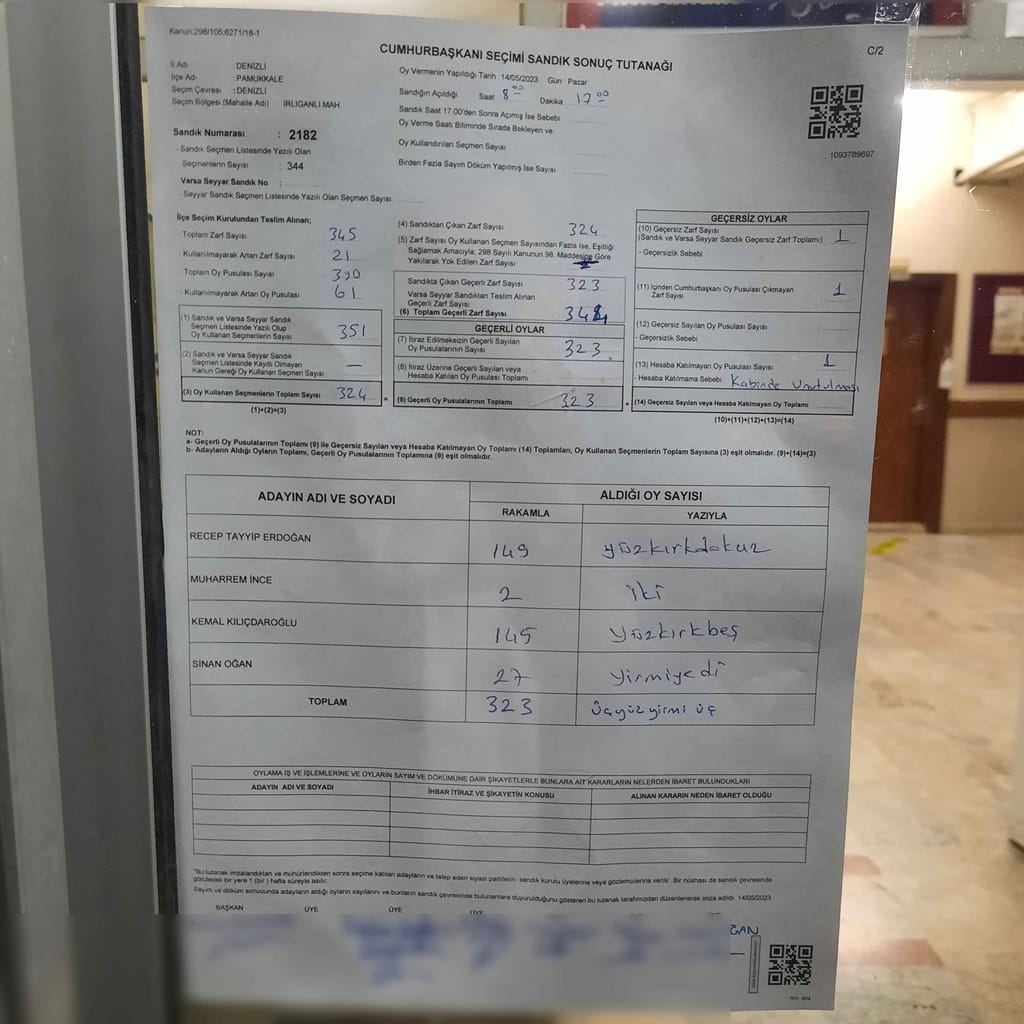 Kanun:298/105;6271/18-1
C/2
CUMHURBAŞKANI SEÇİMİ SANDIK SONUÇ TUTANAĞI
İl Adı : DENİZLİ
İlçe Adı : PAMUKKALE
Seçim Çevresi : DENİZLİ
Seçim Bölgesi (Mahalle Adı) IRLIGANLI MAH.
Oy Vermenin Yapıldığı Tarih :14/05/2023 Gün : Pazar
Sandığın Açıldığı Saat 8 00 Dakika 17 00
Sandık Saat 17:00'den Sonra Açımış İse Sebebi
Oy Verme Saati Bitiminde Sırada Bekleyen ve
Oy Kullandırılan Seçmen Sayısı
Birden Fazla Sayım Döküm Yapılmış İse Sayısı
1093789697
Sandık Numarası : 2182
- Sandık Seçmen Listesinde Yazılı Olan
Seçmenlerin Sayısı : 344
Varsa Seyyar Sandık No :
- Seyyar Sandık Seçmen Listesinde Yazılı Olan Seçmen Sayısı
İlçe Seçim Kurulundan Teslim Alınan;
- Toplam Zarf Sayısı 345
- Kullanılmayarak Artan Zarf Sayısı 21
- Toplam Oy Pusulası Sayısı 390
- Kullanılmayarak Artan Oy Pusulası 61
(1) Sandık ve Varsa Seyyar Sandık
Seçmen Listesinde Yazılı Olup
Oy Kullanan Seçmenlerin Sayısı 351
(2) Sandık ve Varsa Seyyar Sandık
Seçmen Listesinde Kayıtlı Olmayan
Kanun Gereği Oy Kullanan Seçmen Sayısı —
(3) Oy Kullanan Seçmenlerin Toplam Sayısı 324 =
(1)+(2)=(3)
(4) Sandıktan Çıkan Zarf Sayısı 324
(5) Zarf Sayısı Oy Kullanan Seçmen Sayısından Fazla İse, Eşitliği
Sağlamak Amacıyla, 298 Sayılı Kanunun 98. Maddesine Göre
Yakılarak Yok Edilen Zarf Sayısı
Sandıkta Çıkan Geçerli Zarf Sayısı 323
Varsa Seyyar Sandıktan Teslim Alınan
Geçerli Zarf Sayısı
(6) Toplam Geçerli Zarf Sayısı
GEÇERLİ OYLAR
(7) İtiraz Edilmeksizin Geçerli Sayılan
Oy Pusulalarının Sayısı 323
(8) İtiraz Üzerine Geçerli Sayılan veya
Hesaba Katılan Oy Pusulası Toplamı
(9) Geçerli Oy Pusulalarının Toplamı 323 +
GEÇERSİZ OYLAR
(10) Geçersiz Zarf Sayısı
(Sandık ve Varsa Seyyar Sandık Geçersiz Zarf Toplamı) 1
- Geçersizlik Sebebi
(11) İçinden Cumhurbaşkanı Oy Pusulası Çıkmayan
Zarf Sayısı 1
(12) Geçersiz Sayılan Oy Pusulası Sayısı
- Geçersizlik Sebebi
(13) Hesaba Katılmayan Oy Pusulası Sayısı 1
- Hesaba Katılmama Sebebi : Kabinde Unutulması
(14) Geçersiz Sayılan veya Hesaba Katılmayan Oy Toplamı
(10)+(11)+(12)+(13)=(14)
NOT:
a- Geçerli Oy Pusulalarının Toplamı (9) ile Geçersiz Sayılan veya Hesaba Katılmayan Oy Toplamı (14) Toplamları, Oy Kullanan Seçmenlerin Toplam Sayısına (3) eşit olmalıdır. (9)+(14)=(3)
b- Adayların Aldığı Oyların Toplamı, Geçerli Oy Pusulalarının Toplamına (9) eşit olmalıdır.
ADAYIN ADI VE SOYADI
ALDIĞI OY SAYISI
RAKAMLA YAZIYLA
RECEP TAYYİP ERDOĞAN 149 yüzkırkdokuz
MUHARREM İNCE 2 iki
KEMAL KILIÇDAROĞLU 145 yüzkırkbeş
SİNAN OĞAN 27 yirmiyedi
TOPLAM 323 üçyüzyirmi üç
OYLAMA İŞ VE İŞLEMLERİNE VE OYLARIN SAYIM VE DÖKÜMÜNE DAİR ŞİKAYETLERLE BUNLARA AİT KARARLARIN NELERDEN İBARET BULUNDUKLARI
ADAYIN ADI VE SOYADI İHBAR İTİRAZ VE ŞİKAYETİN KONUSU ALINAN KARARIN NEDEN İBARET OLDUĞU
"Bu tutanak imzalandıktan ve mühürlendikten sonra seçime katılan adayların ve talep eden siyasi partilerin sandık kurulu üyelerine veya gözlemcilerine verilir. Bir nüshası da sandık çevresinde
görülecek bir yere 1 (bir) hafta süreyle asılır.
Sayım ve döküm sonucunda adayların aldığı oyların sayılarını ve bunların sandık çevresinde bulunanlara duyurulduğunu gösteren bu tutanak tarafımızdan düzenlenerek imza edildi. 14/05/2023
BAŞKAN ÜYE ÜYE ÜYE
ĞAN